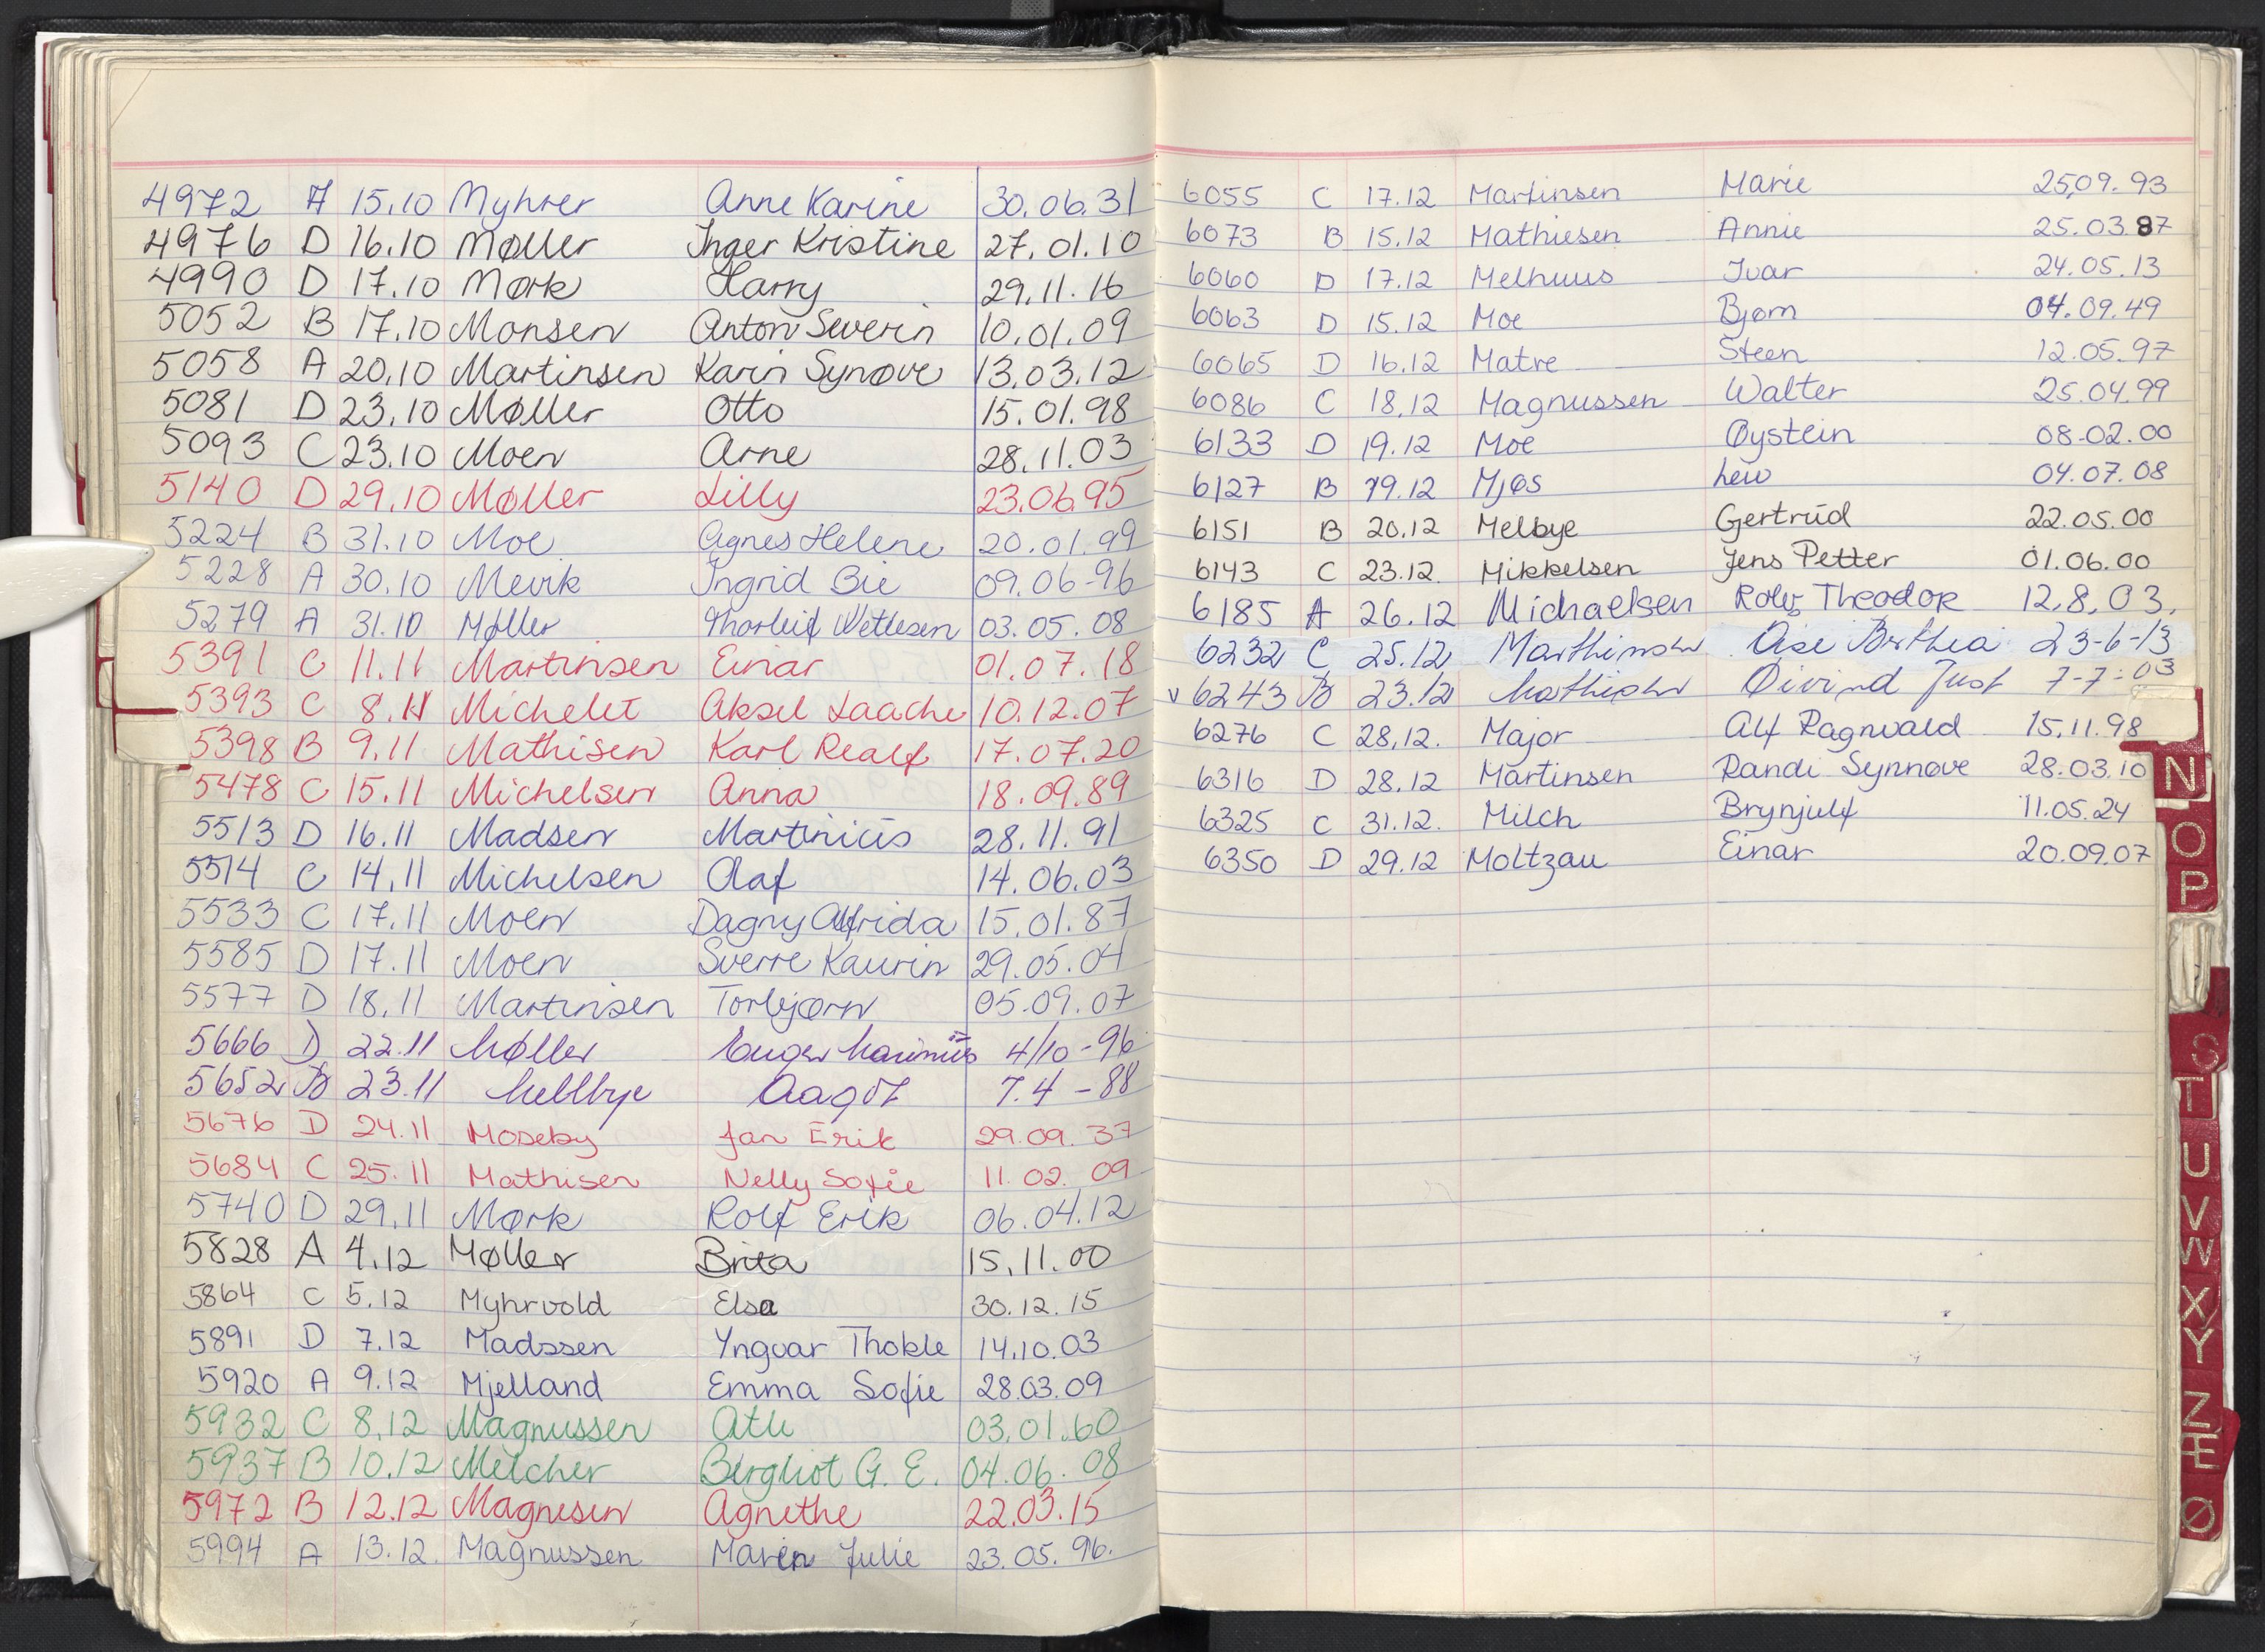 4972 A 15.10 Myhrer Anne Karine 30.06.31
4976 D 16.10 Møller Inger Kristine 27.01.10
4990 D 17.10 Mørk Harry 29.11.16
5052 B 17.10 Monsen Anton Severin 10.01.09
5058 A 20.10 Martinsen Karin Synøve 13.03.12
5081 D 23.10 Møller Otto 15.01.98
5093 C 23.10 Moen Arne 28.11.03
5140 D 29.10 Møller Lilly 23.06.95
5224 B 31.10 Moe Agnes Helene 20.01.99
5228 A 30.10 Mevik Ingrid Bie 09.06-96
5279 A 31.10 Møller Thorleif Wetlesen 03.05.08
5391 C 11.11 Martinsen Einar 01.07.18
5393 C 8.11 Michelet Aksel Laache 10.12.07
5398 B 9.11 Mathisen Karl Realf 17.07.20
5478 C 15.11 Michelsen Anna 18.09.89
5513 D 16.11 Madsen Martinius 28.11.91
5514 C 14.11 Michelsen Olaf 14.06.03
5533 C 17.11 Moen Dagny Alfrida 15.01.87
5585 D 17.11 Moen Sverre Kaurin 29.05.04
5577 D 18.11 Martinsen Torbjørn 05.09.07
5666 D 22.11 Møller 4/10-96
5652 B 23.11 Mellbye Aagot 7.4-88
5676 D 24.11 Moseby Jan Erik 29.09.37
5684 C 25.11 Mathisen Nelly Sofie 11.02.09
5740 D 29.11 Mørk Rolf Erik 06.04.12
5828 A 4.12 Møller Brita 15.11.00
5864 C 5.12 Myhrvold Elsa 30.12.15
5891 D 7.12 Madssen Yngvar Thokle 14.10.03
5920 A 9.12 Mjelland Emma Sofie 28.03.09
5932 C 8.12 Magnussen Atli 03.01.60
5937 B 10.12 Melcher Bergliot G. E. 04.06.08
5972 B 12.12 Magnesen Agnethe 22.03.15
5994 A 13.12. Magnussen Maren Julie 23.05.96.
6055 C 17.12 Martinsen Marie 25.09.93
6073 B 15.12 Mathiesen Annie 25.03.87
6060 D 17.12 Melhuus Ivar 24.05.13
6063 D 15.12 Moe Bjørn 04.09.49
6065 D 16.12 Matre Steen 12.05.97
6086 C 18.12 Magnussen Walter 25.04.99
6133 D 19.12 Moe Øystein 08-02.00
6127 B 19.12 Mjøs Leiv 04.07.08
6151 B 20.12 Melbye Gertrud 22.05.00
6143 C 23.12. Mikkelsen Jens Petter 01.06.00
6185 A 26.12 Michaelsen Rolv Theodor 12.8.03.
6232 C 25.12 Marthinsen Åse Berthea 23-6-13
v 6243 B 23.12 Mathisen Øivind Just 7-7-03
6276 C 28.12. Major Alf Ragnvald 15.11.98
6316 D 28.12 Martinsen Randi Synnøve 28.03.10
6325 C 31.12. Milch Brynjulf 11.05.24
6350 D 29.12 Moltzau Einar 20.09.07
N
O
P
S
T
U
V
W
X
Y
Z
Æ
Ø